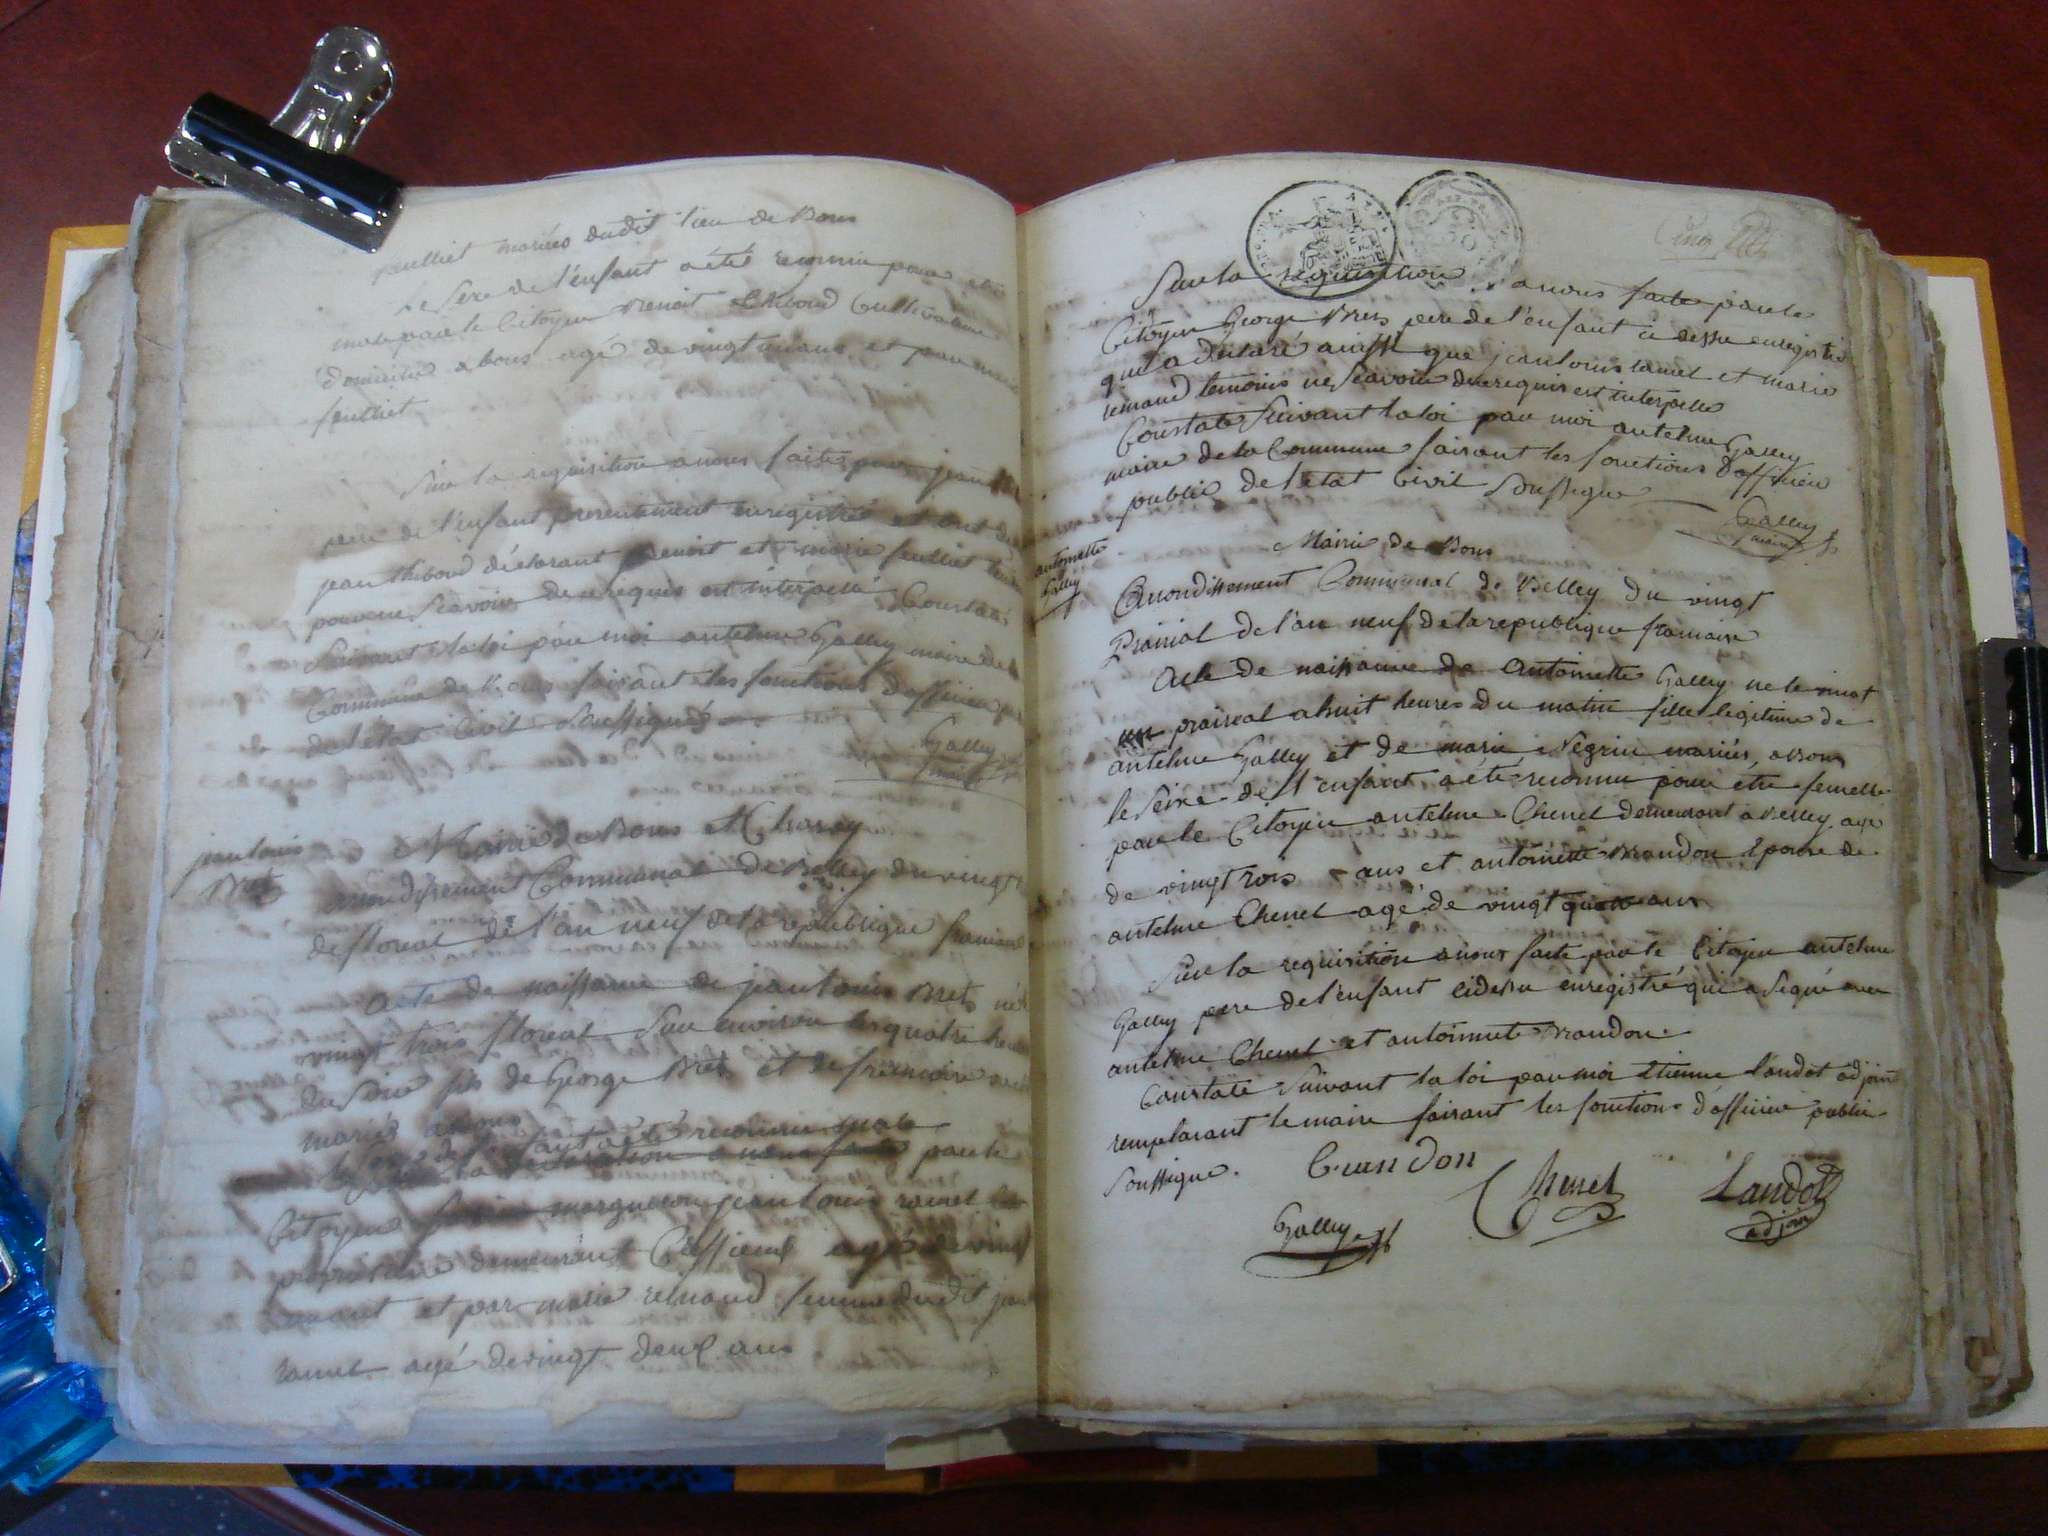 feulliet mariés dudit lieu de Bons
Le sexe de l'enfant a été reconnu pour etre
male par le Citoyen Benoit thiboud Cultivateur
domicilié a bons agé de vingt un ans et par marie
feulliet
Sur la requisition a nous faites par jean
pere de l'enfant presentement enregistré et ont dit
jean thiboud déclarant benoit et marie feulliet
pouvoir Scavoir de ce requis et interpellé Constaté
Suivant la loi par moi antelme Galley maire de la
Commune de Bons faisant les fonctions d'officier
de l'état Civil Soussigné
Galley
maire
jean louis
Bret
Mairie de Bons et Charey
arrondissement Communal de Belley du vingt
de floreal de l'an neuf de la republique francaise
acte de naissance de jean louis Bret né
vingt trois floreal Sur environ les quatre heures
du Soir fils de George Bret et de
mariés a bons
le sexe de l'enfant a été reconnu male
par le
Citoyen jean louis ramel
proprietaire demeurant agé de vingt
et par marie remand femme dudit jean
ramel agé de vingt deux ans
Sur la requisition a nous faite par le
Citoyen George Bret pere de l'enfant ci dessu enregistré
qui a declaré ainssi que jean louis ramel et marie
remand temoins ne Scavoir de ce requis et interpellé
Constaté Suivant la loi par moi antelme Galley
maire de la Commune faisant les fonctions d'officier
public de l'etat Civil Soussigne
Galley
maire
antoinette
Galley
Mairie de Bons
arrondissement Communal de Belley Du vingt
Prairial de l'an neuf de la republique francaise
Acte de naissance de Antoinette Galley ne le vingt
un praireal a huit heures du matin fille legitime de
antelme Galley et de marie Negrin mariés, a bons
le Sexe de l'enfant a été reconnu pour etre femelle
par le Citoyen antelme Chenel demeurant a Belley agé
de vingt trois ans et antoinette Brandon Epouse de
antelme Chenel agé de vingt quatre ans
Sur la requisition a nous faite par le Citoyen antelme
Galley pere de l'enfant cidessu enregistré qui a Signé avec
antelme Chenel et antoinette Brandon
Constaté Suivant la loi par moi Etienne Landot adjoint
remplacant le maire faisant les fonctions d'officier public
Soussigne.
Brandon
Chenel
Landot
adjoin
Galley